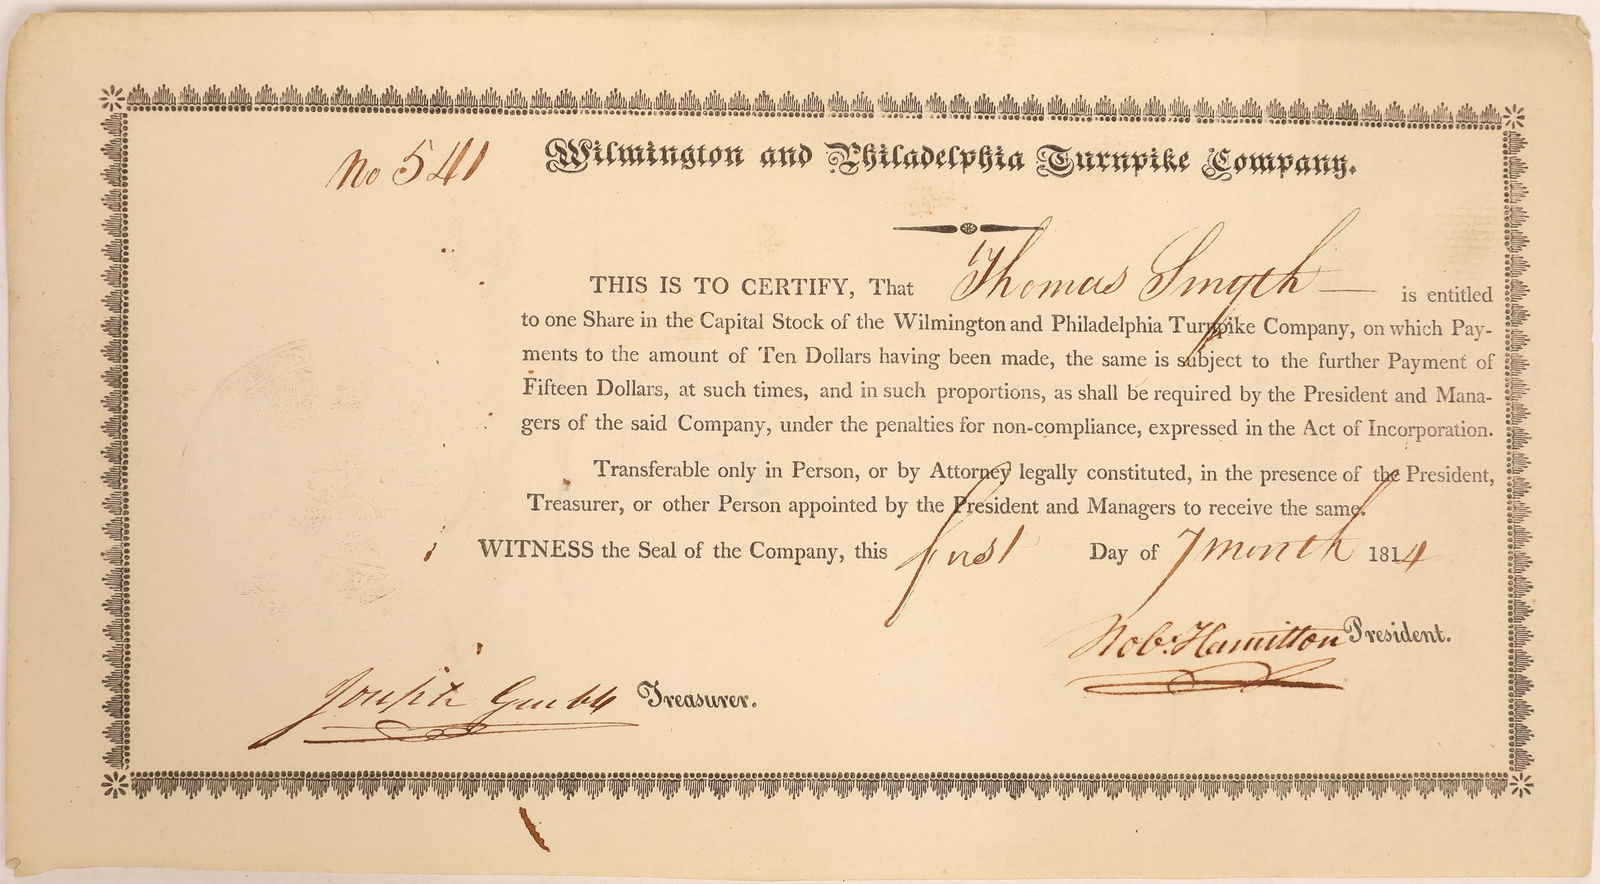 No 541
Wilmington and Philadelphia Turnpike Company.
THIS IS TO CERTIFY, That Thomas Smyth — is entitled
to one Share in the Capital Stock of the Wilmington and Philadelphia Turnpike Company, on which Pay-
ments to the amount of Ten Dollars having been made, the same is subject to the further Payment of
Fifteen Dollars, at such times, and in such proportions, as shall be required by the President and Mana-
gers of the said Company, under the penalties for non-compliance, expressed in the Act of Incorporation.
Transferable only in Person, or by Attorney legally constituted, in the presence of the President,
Treasurer, or other Person appointed by the President and Managers to receive the same.
WITNESS the Seal of the Company, this first Day of 7 month 1814
Rob: Hamilton President.
Joseph Grubb Treasurer.